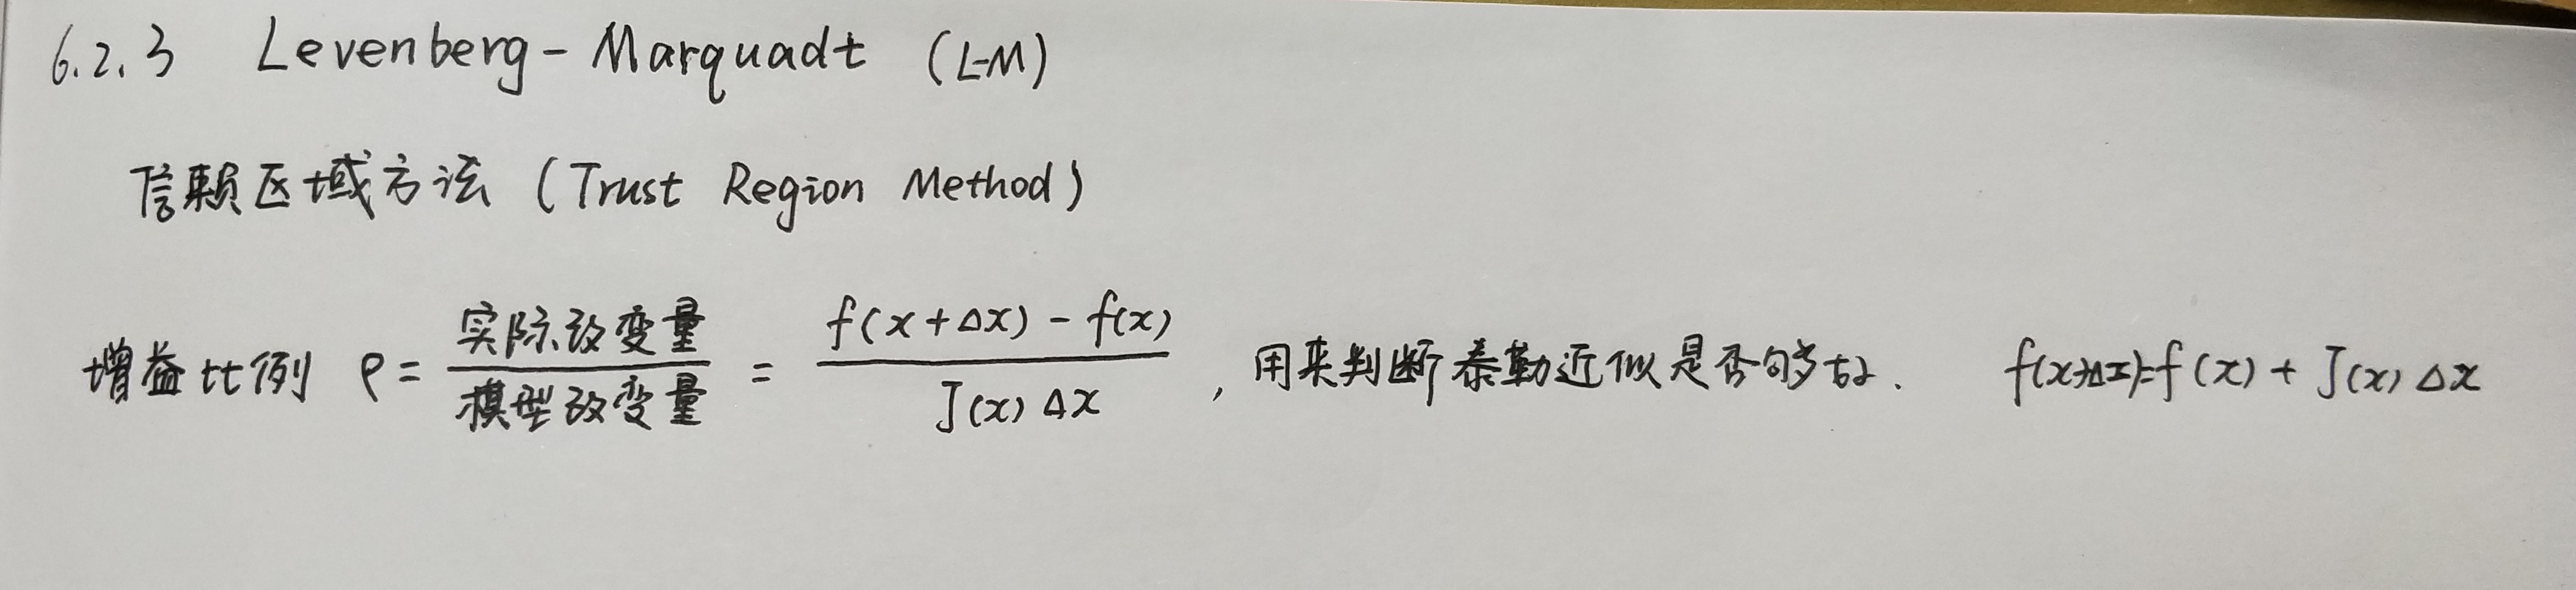 6.2.3 Levenberg-Marquadt (L-M)
信赖区域方法 (Trust Region Method)
增益比例 ρ = 实际改变量/模型改变量 = f(x+Δx) - f(x)/J(x)Δx , 用来判断泰勒近似是否够好. f(x+Δx)=f(x) + J(x)Δx